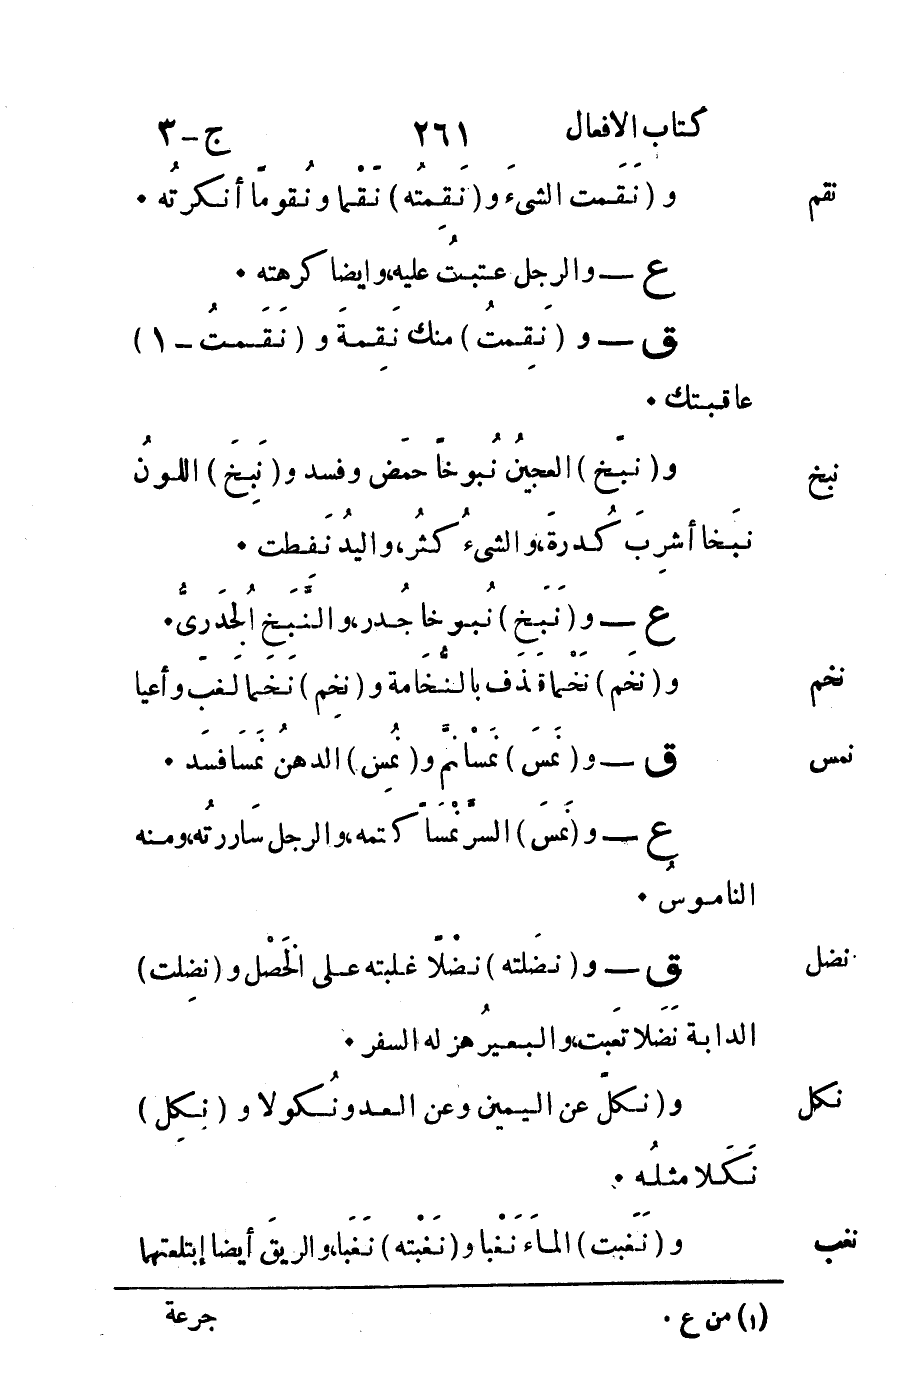 كتاب الافعال ٢٦١ ج - ٣
نقم و (نَقَمت الشيءَ و (نَقِمتُه) نَقْما و نُقوماً أنكرتُه •
ع — والرجل عتبتُ عليه، وايضا كرهته •
ق — و (نَقِمتُ) منك نَقِمةً و (نَقَمتُ - ١)
عاقبتك •
نبخ و (نبَخ) العجينُ نُبوخاً حمَض وفسد و (نَبِخَ) اللونُ
نبَخا أُشرِبَ كُدرةً، والشيءُ كثُر، واليدُ نَفِطت •
ع — و (نَبَخ) نُبوخا جُدر، والنَّبَخ الجُدَرىُّ •
نخم و (نخَم) نَخْماً قذف بالنُّخامة و (نخِم) نَخَما لغَب وأعيا
نمس ق — و (نمَسَ) نَمْساً نمَّ و (نمِس) الدهنُ نَمَسا فسَد •
ع — و (نمَسَ) السرَّ نَمْساً كتمه، والرجل سَاررتُه، ومنه
الناموسُ •
نضل ق — و (نضَلته) نضْلاً غلبته على الخَصْل و (نضِلت)
الدابة نَضَلا تعَبت، والبعيرُ هزله السفر •
نكل و (نكَل عن اليمين وعن العدو نُكولا و (نكِل)
نَكَلا مثلُه •
نغب و (نَغَبت) الماءَ نَغْبا و (نَغَبْته) نَغَبَا، والريقَ أيضا إبتلعتهما
(١) من ع •
جرعة